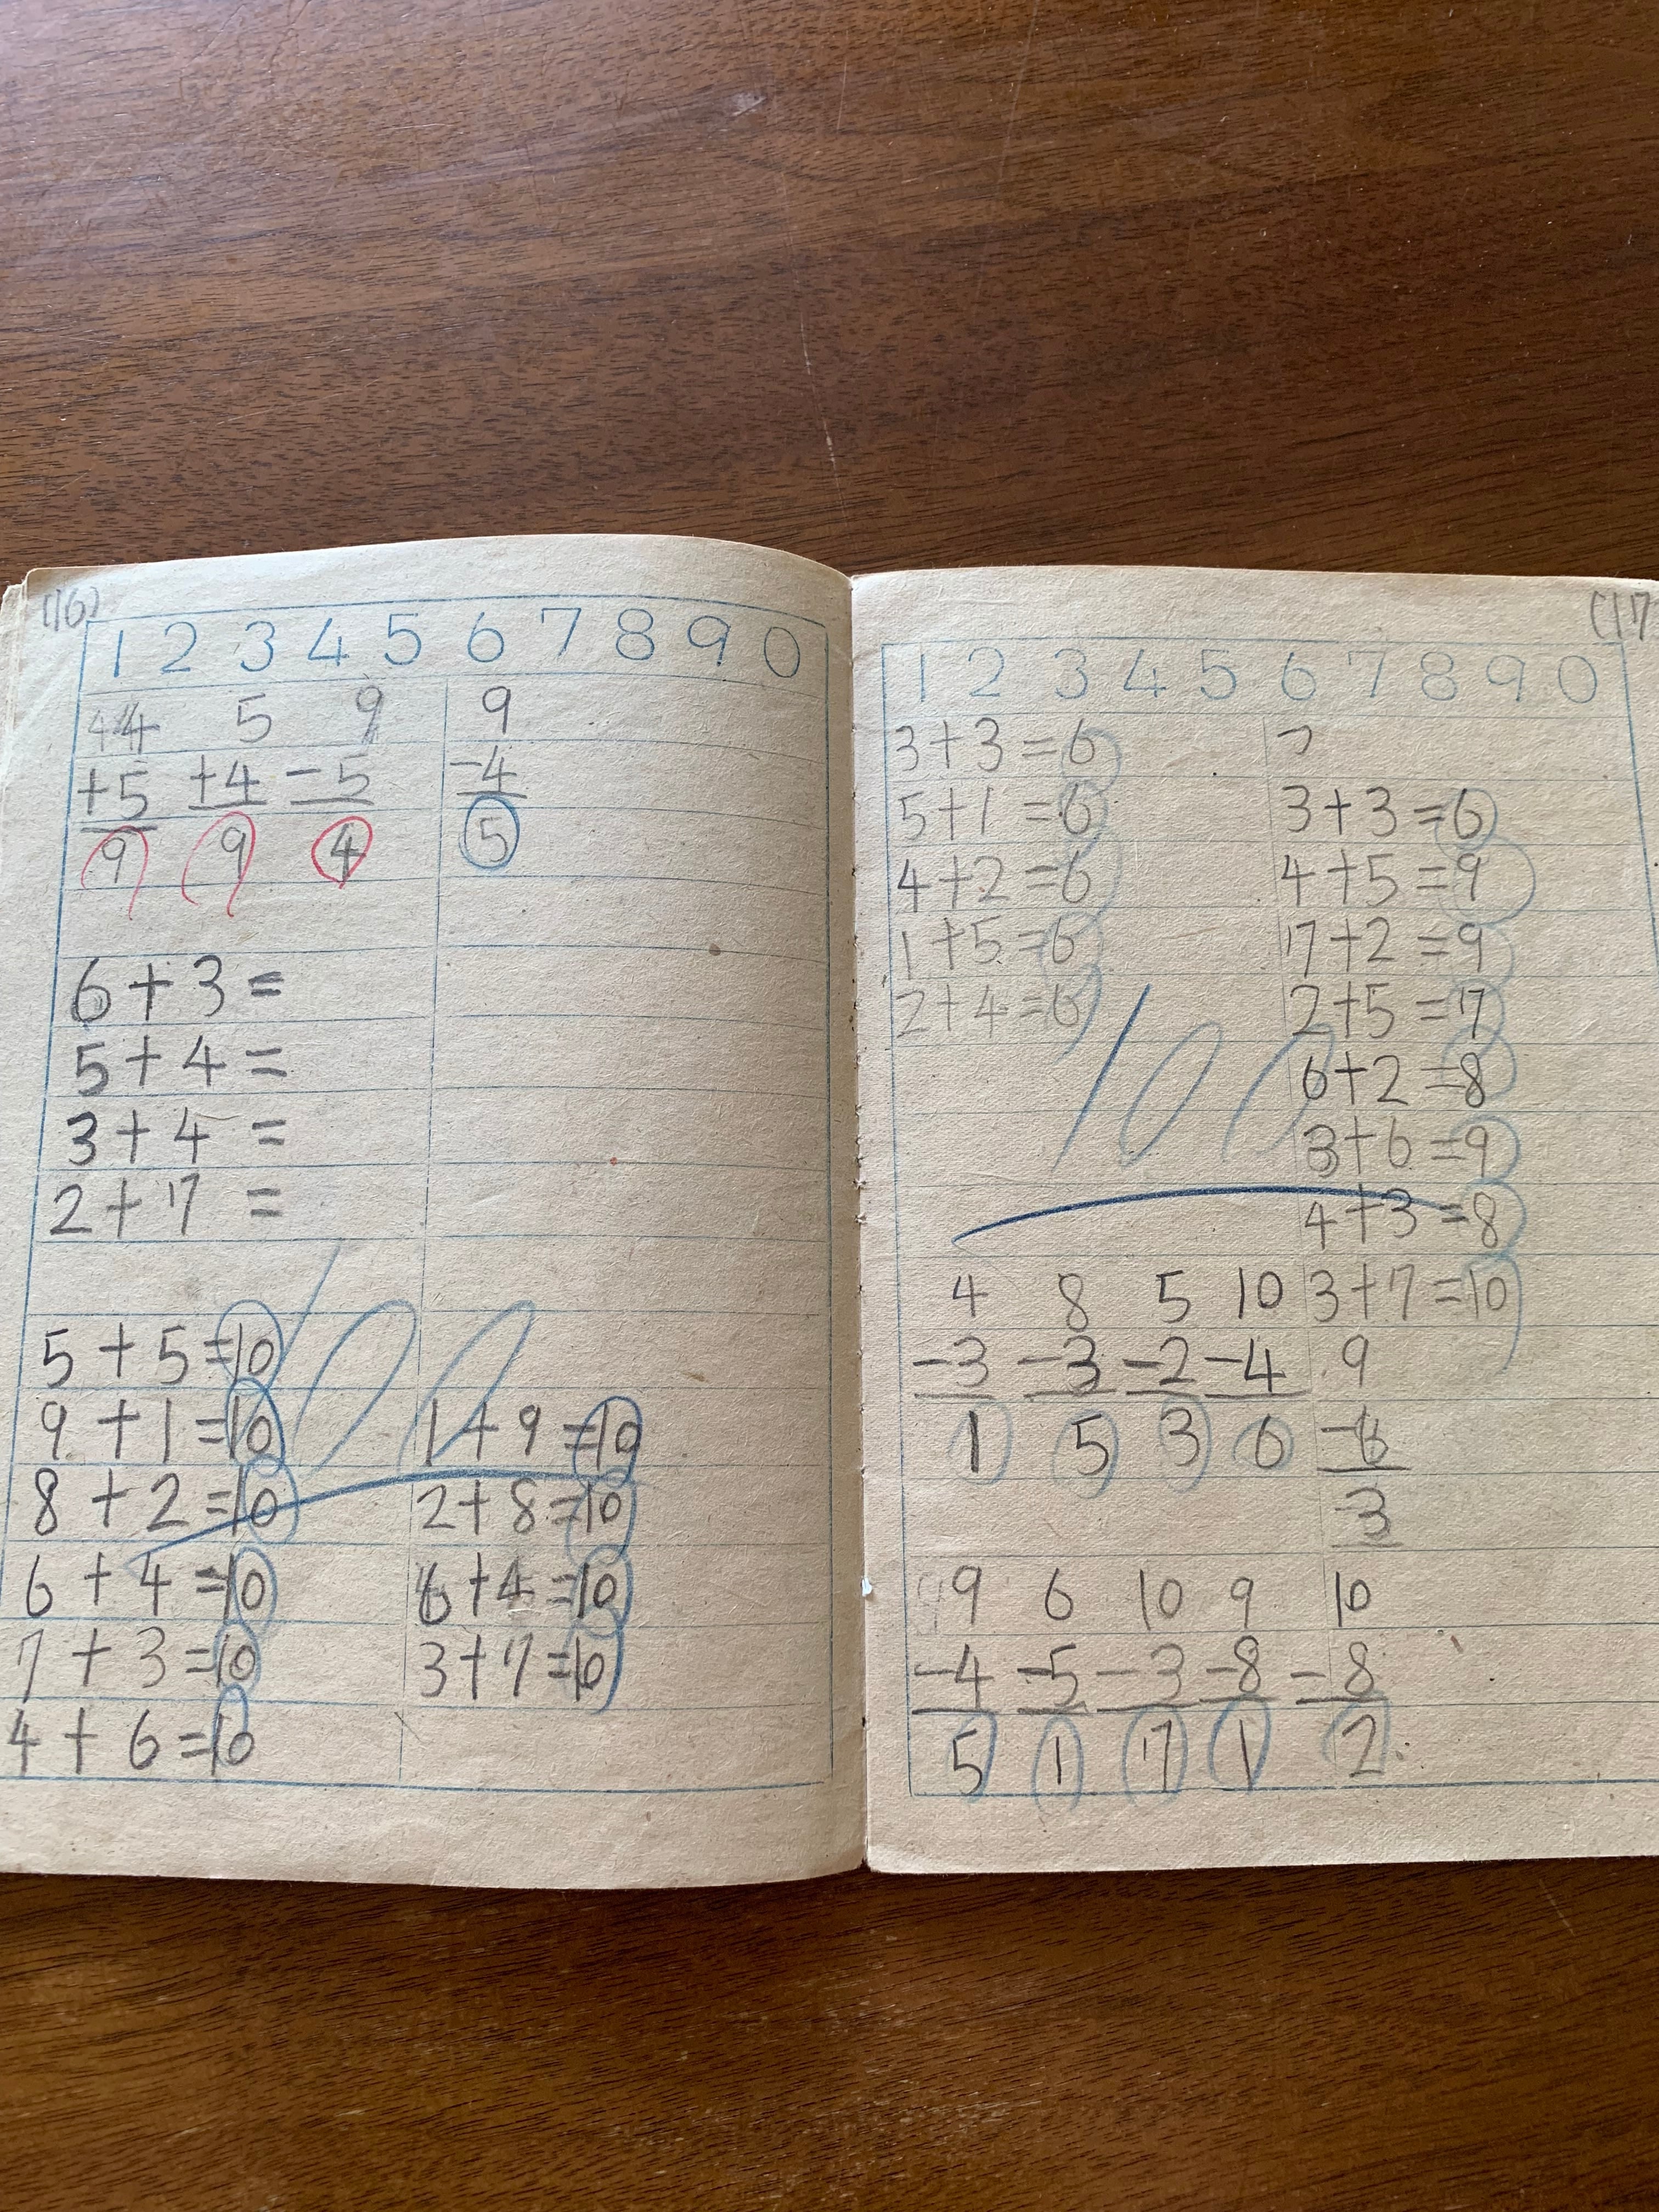 (16)
1 2 3 4 5 6 7 8 9 0
4 5 9 9
+5 +4 -5 -4
9 9 4 5
6+3=
5+4=
3+4=
2+7=
100
5+5=10
9+1=10 1+9=10
8+2=10 2+8=10
6+4=10 6+4=10
7+3=10 3+7=10
4+6=10
(17
1 2 3 4 5 6 7 8 9 0
3+3=6
5+1=6 3+3=6
4+2=6 4+5=9
1+5=6 7+2=9
2+4=6 2+5=7
100 6+2=8
3+6=9
4+3=8
4 8 5 10 3+7=10
-3 -3 -2 -4 9
1 5 3 6 -6
3
9 6 10 9 10
-4 -5 -3 -8 -8
5 1 7 1 2